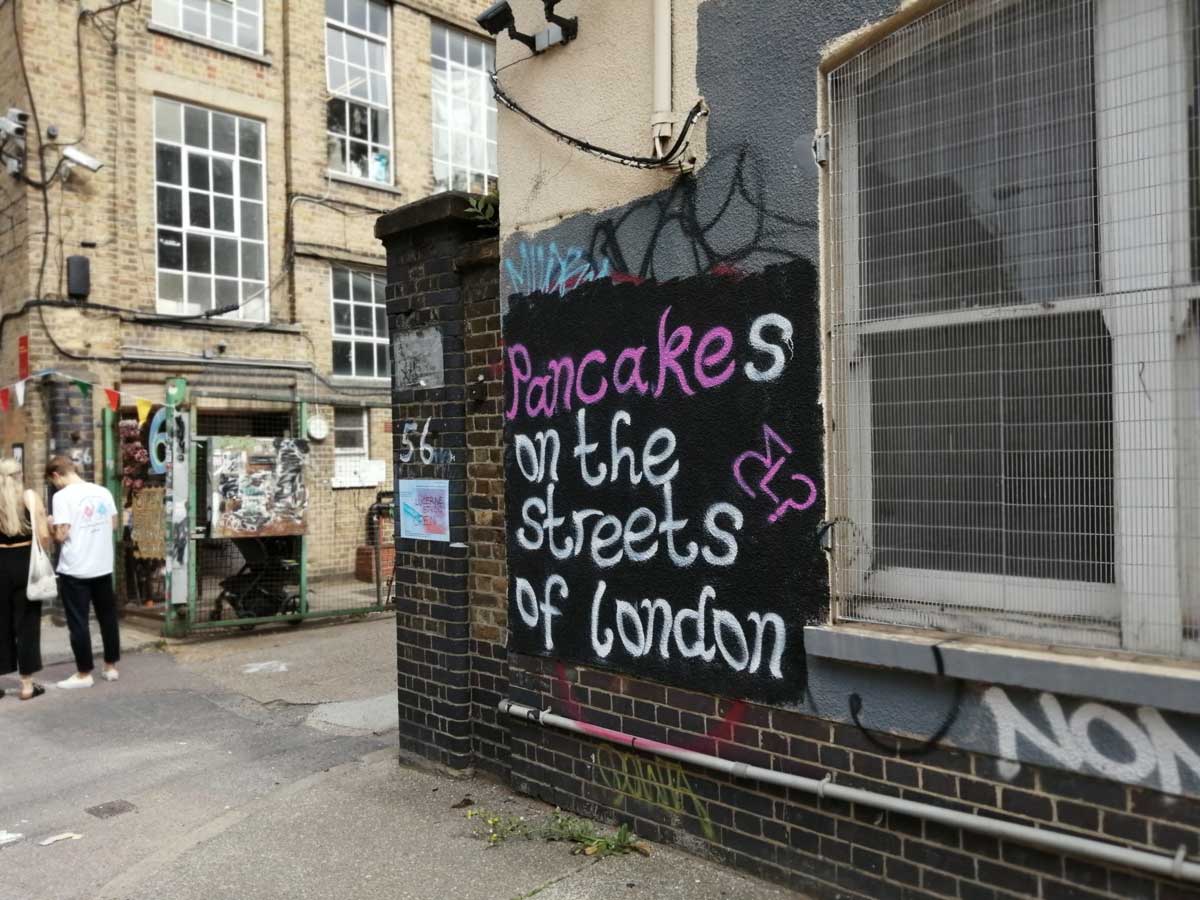 Pancakes
on the
streets
of london
56
6
56
OPEN
NON